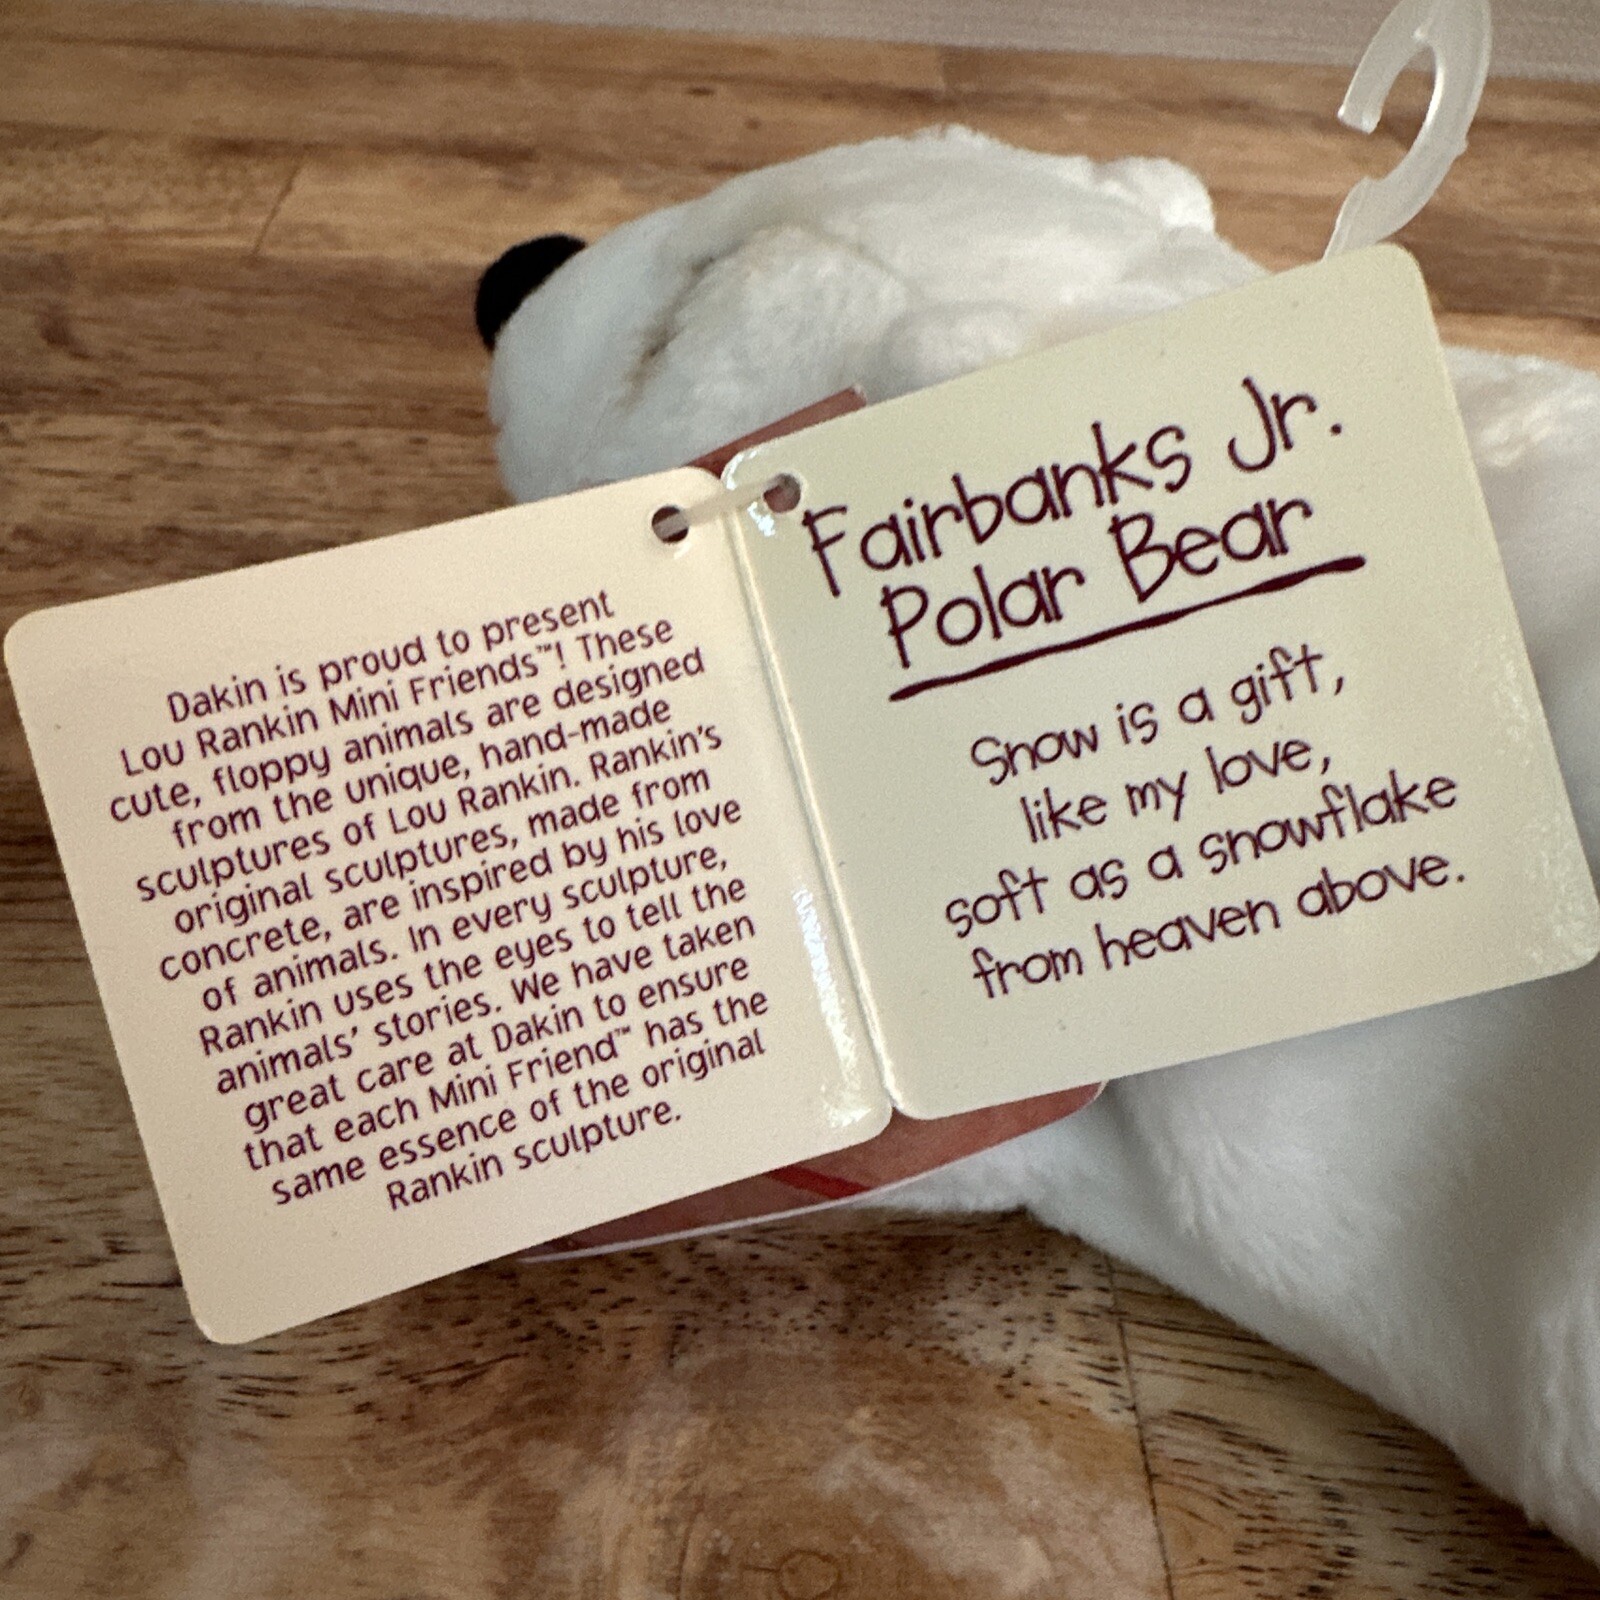 Dakin is proud to present
Lou Rankin Mini Friends™! These
cute, floppy animals are designed
from the unique, hand-made
sculptures of Lou Rankin. Rankin's
original sculptures, made from
concrete, are inspired by his love
of animals. In every sculpture,
Rankin uses the eyes to tell the
animals' stories. We have taken
great care at Dakin to ensure
that each Mini Friend™ has the
same essence of the original
Rankin sculpture.
Fairbanks Jr.
Polar Bear
Snow is a gift,
like my love,
soft as a snowflake
from heaven above.